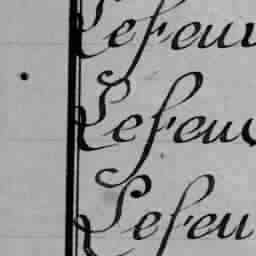 Lefeuv
Lefeuv
Lefeu